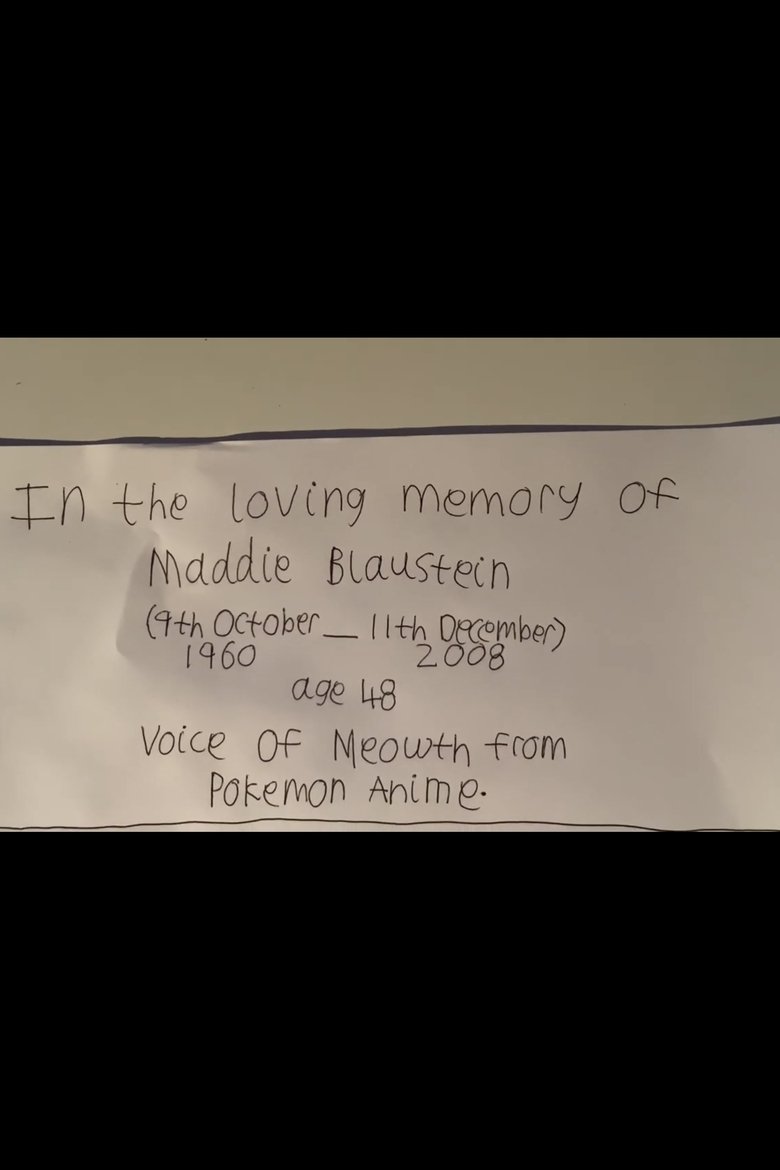 In the loving memory of
Maddie Blaustein
(9th October — 11th December)
1960 2008
age 48
Voice Of Meowth from
Pokemon Anime.